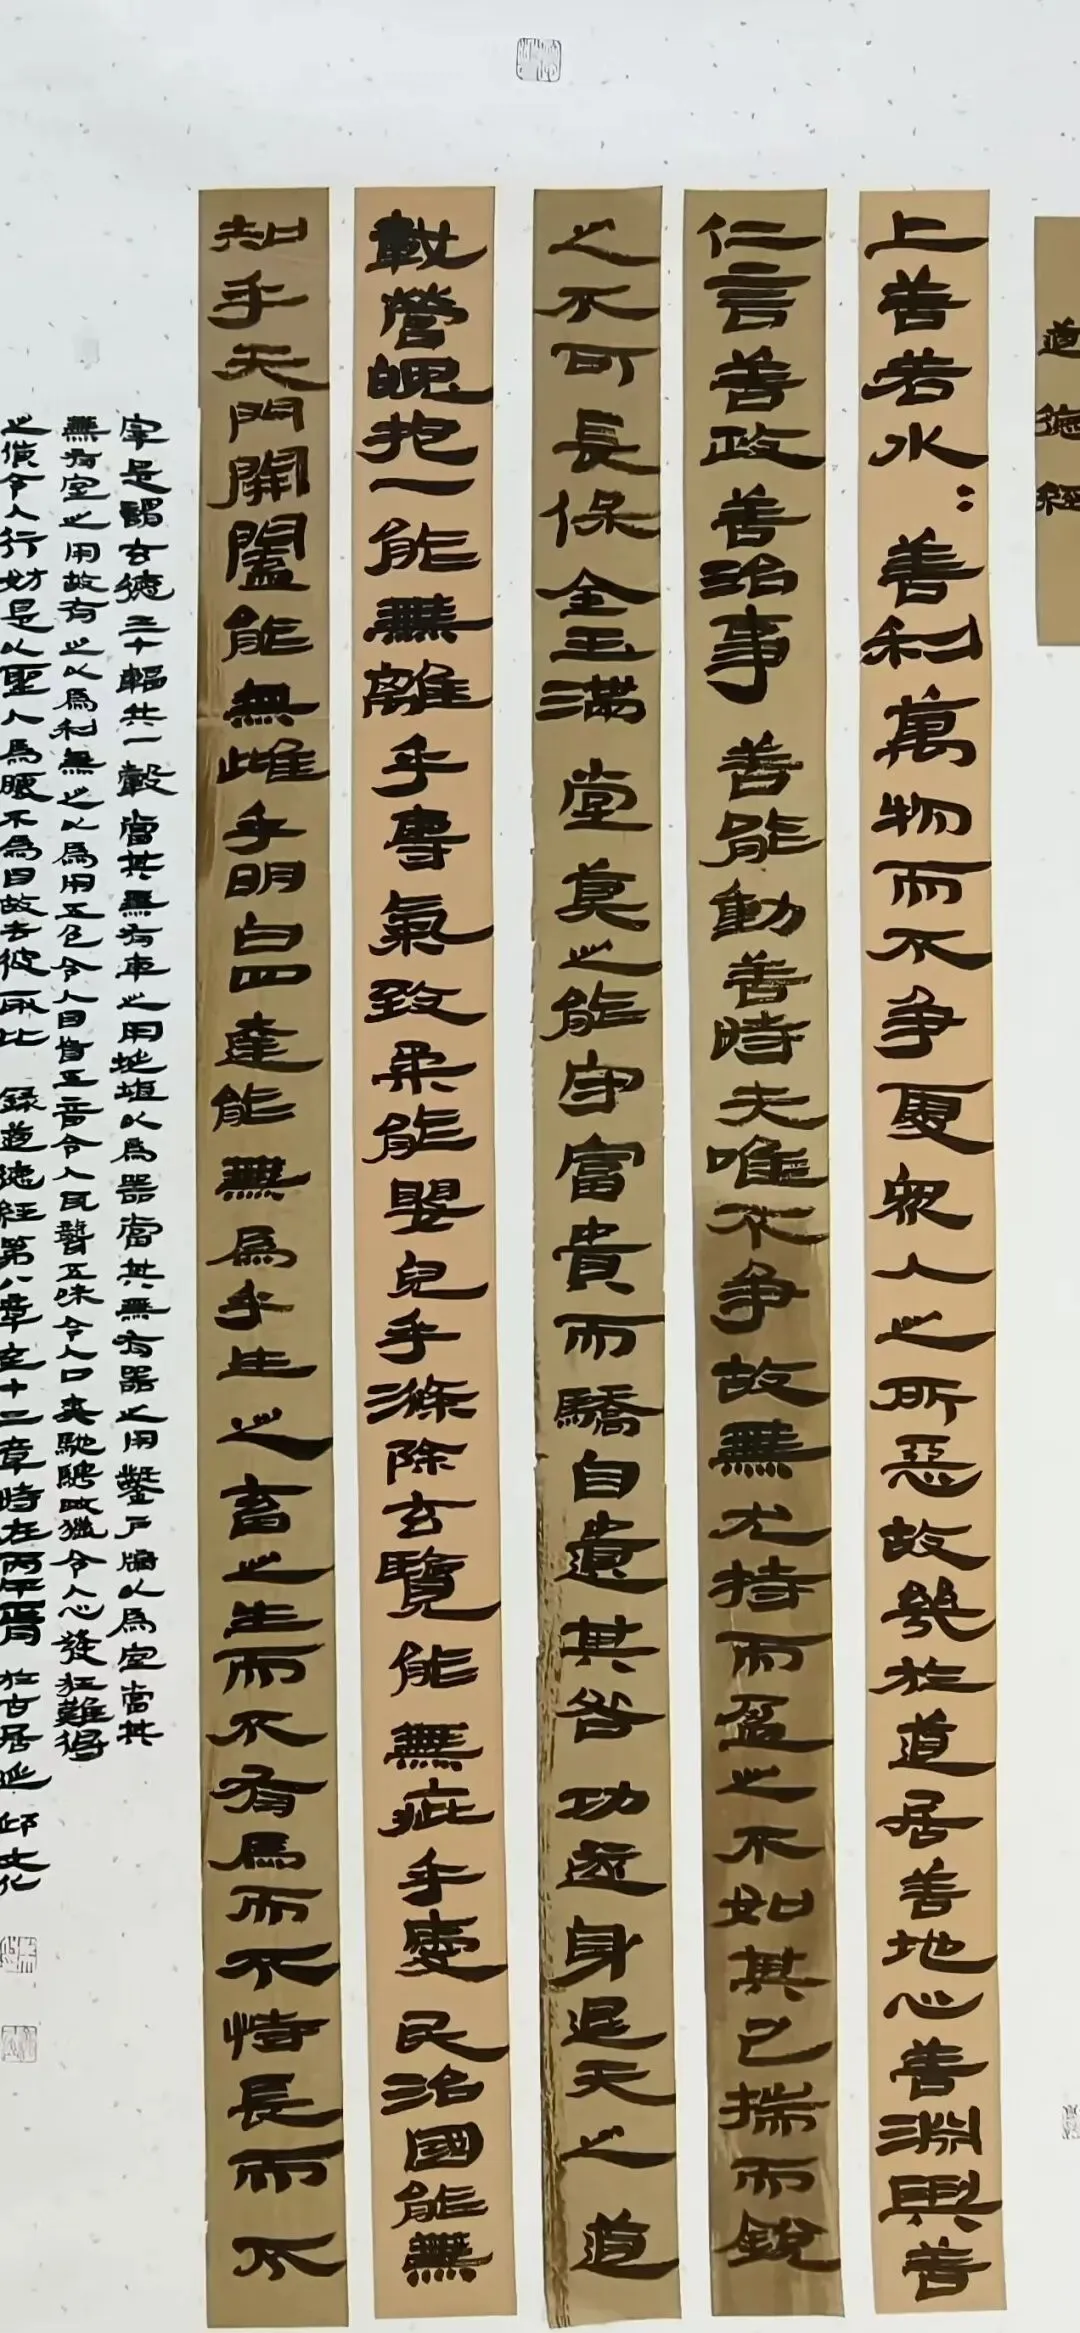 道德經
上善若水：善利萬物而不争夏衆人之所惡故幾於道居善地心善淵與善
仁言善政善治事善能動善時夫唯不争故無尤持而盈之不如其已揣而銳
之不可長保金玉滿堂莫之能守富貴而驕自遺其咎功遂身退天之道
載營魄抱一能無離乎專氣致柔能嬰兒乎滌除玄覽能無疵乎愛民治國能無
知乎天門開闔能無雌乎明白四達能無為乎生之畜之生而不有為而不恃長而不
宰是謂玄德三十輻共一轂當其無有車之用埏埴以為器當其無有器之用鑿戶牖以為室當其
無有室之用故有之以為利無之以為用五色令人目盲五音令人耳聾五味令人口爽馳騁畋獵令人心發狂難得
之貨令人行妨是以聖人為腹不為目故去彼取此 錄道德經第八章至十二章時在丙午 於古居延 邱文化